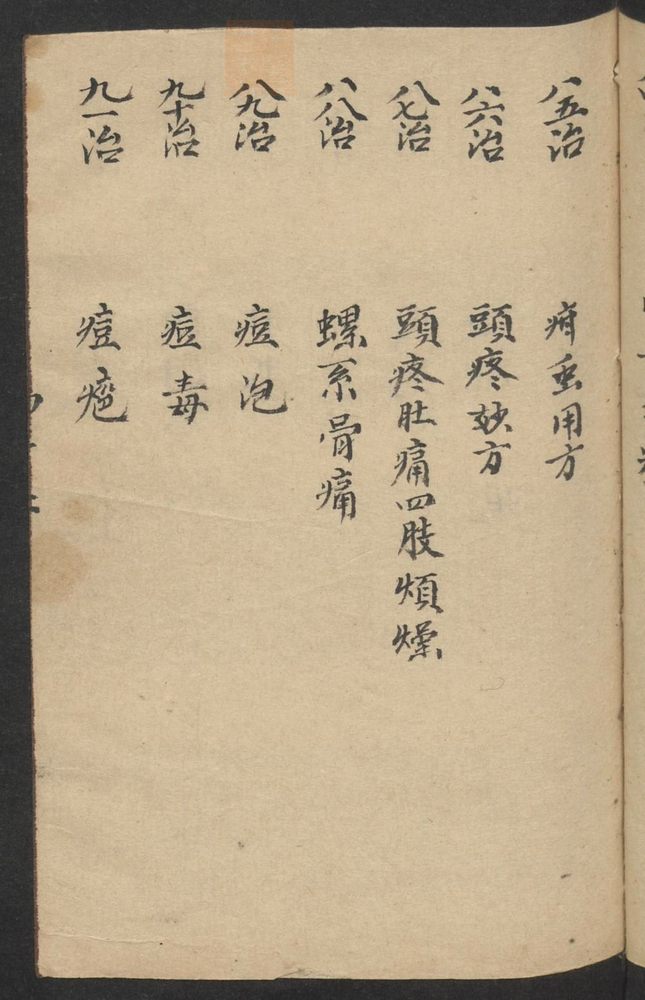 八五治 疳虫用方
八六治 頭疼妙方
八七治 頭疼肚痛四肢煩燥
八八治 螺系骨痛
八九治 痘泡
九十治 痘毒
九一治 痘疤